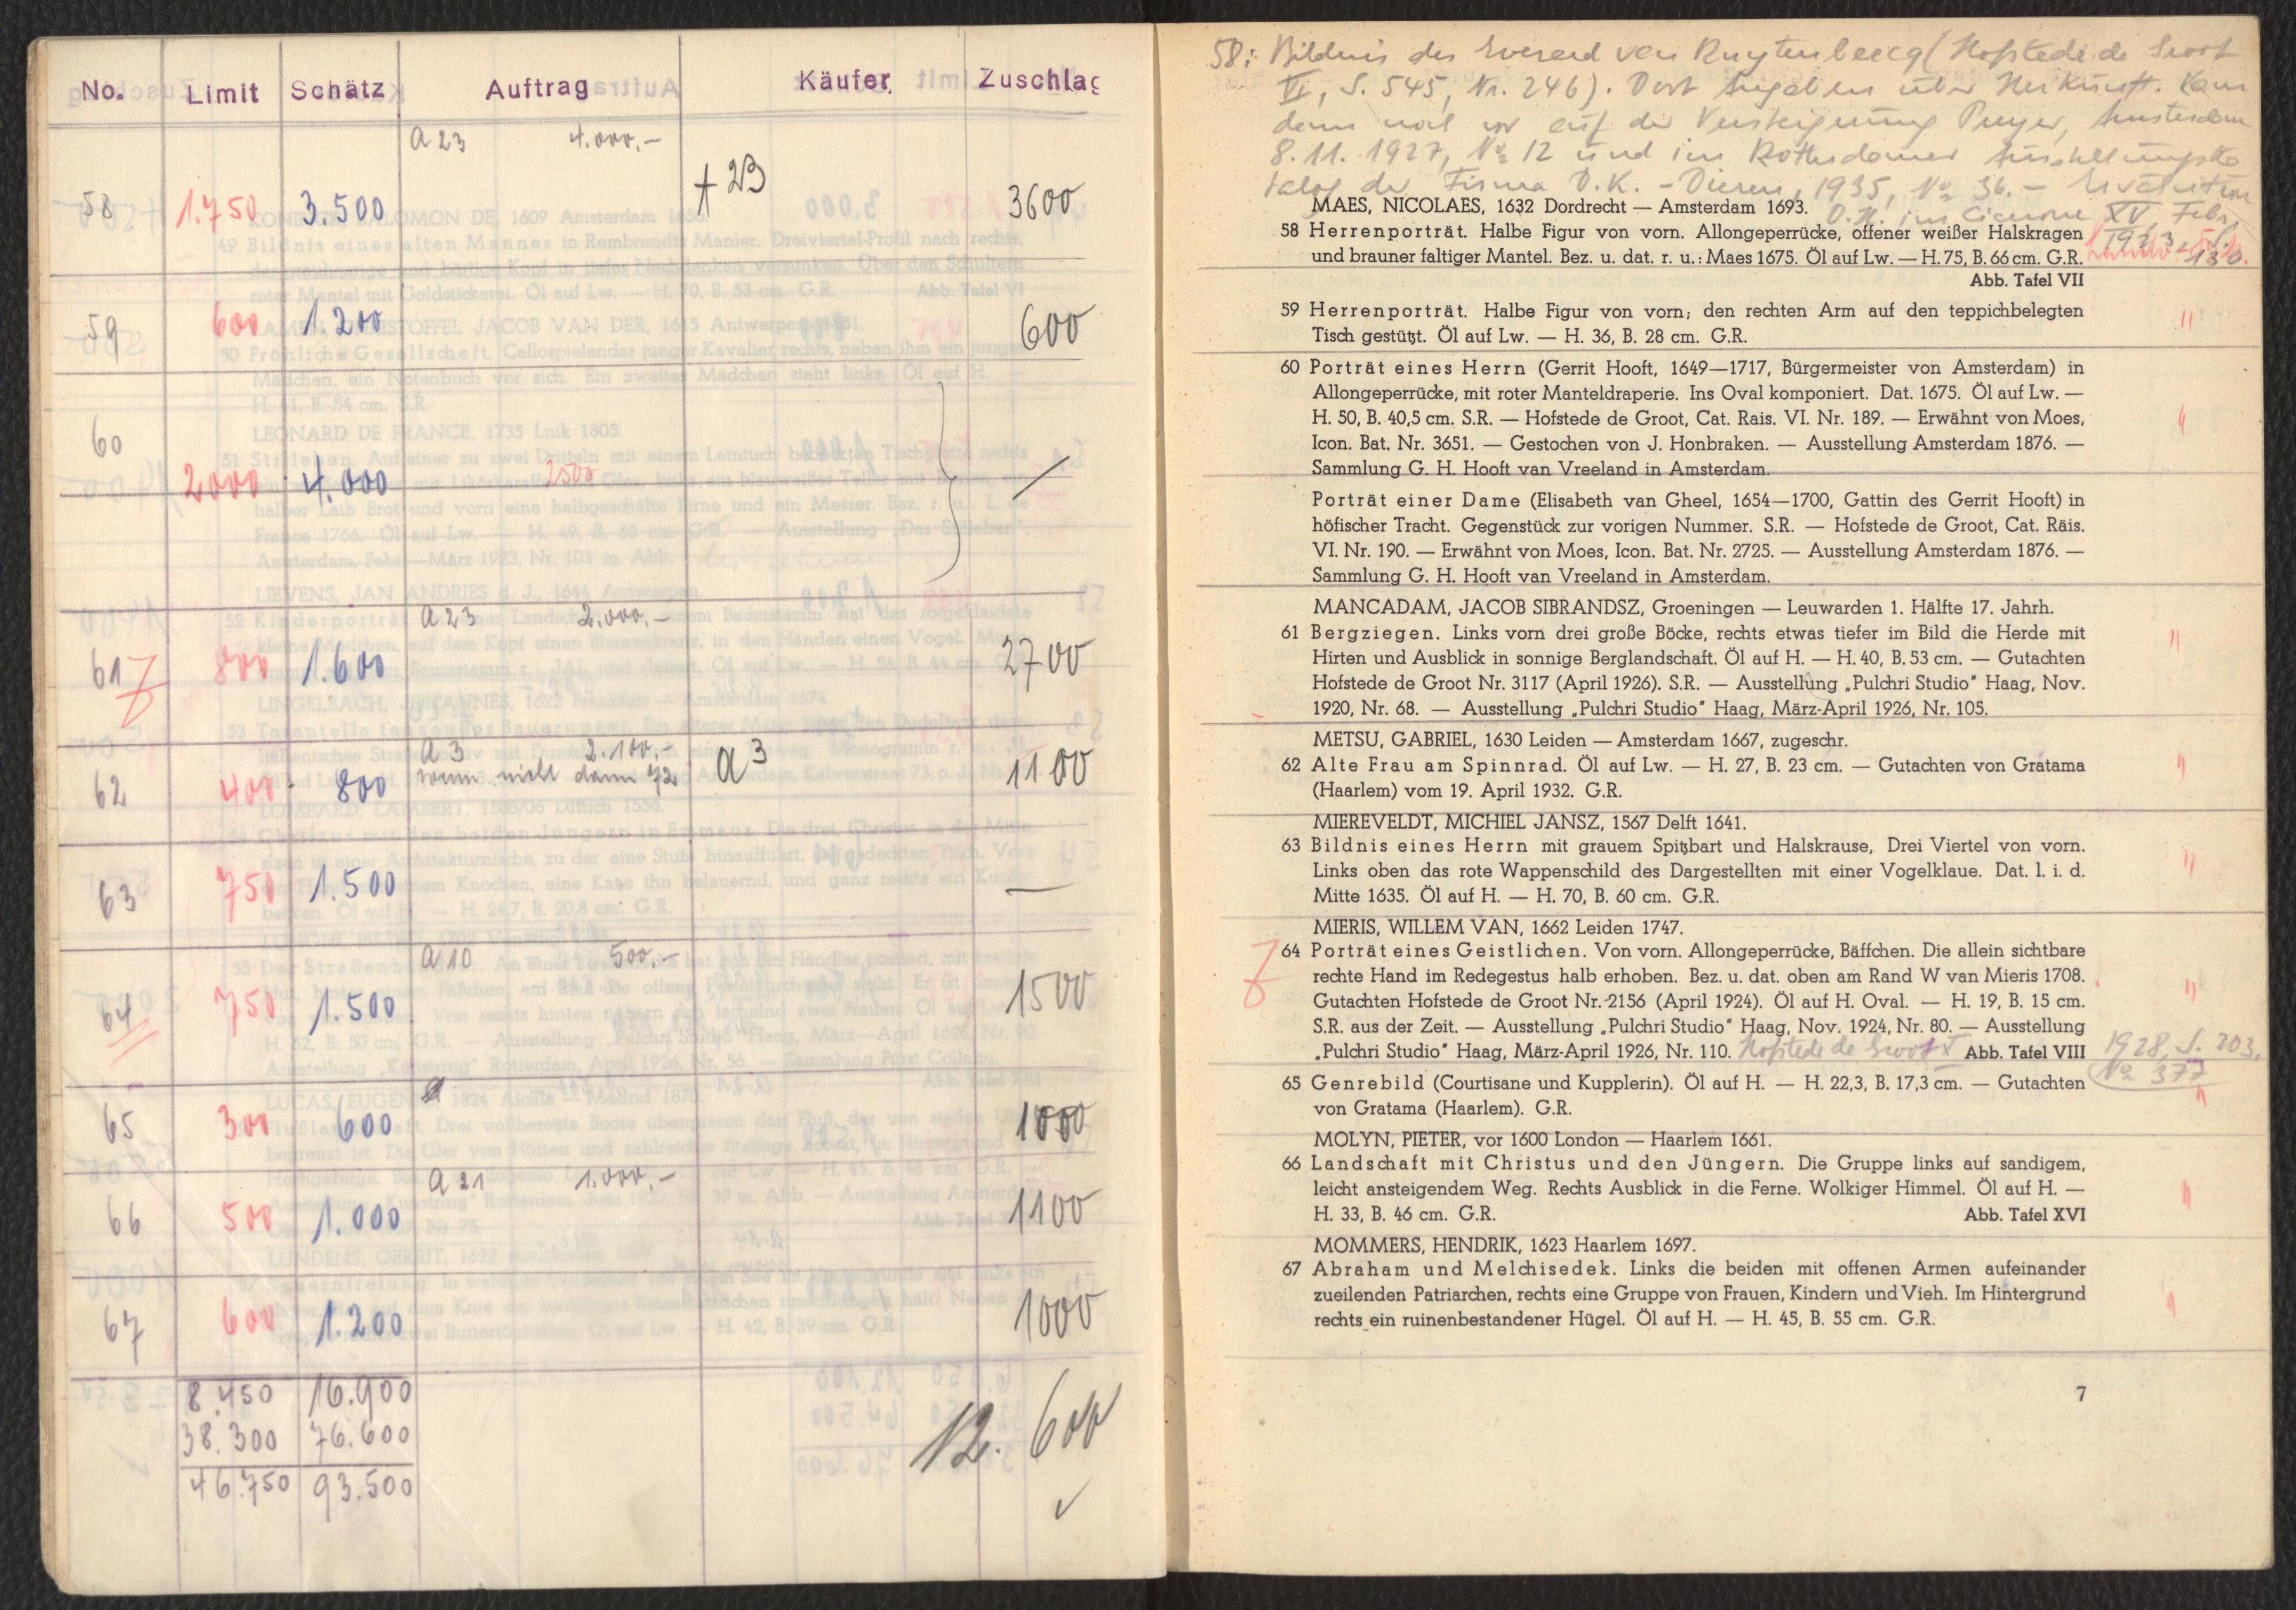 No. Limit Schätz Auftrag Käufer Zuschlag
a 23 4.000.-
58 1.750 3.500 + 23 3600
59 600 1.200 600
60
2000 4.000 2500 —
a 23 2.000.-
61 800 1.600 2700
a 3 2.100.- a 3
wenn nicht dann 72
62 400 800 1100
63 750 1.500 —
a 10 500.-
64 750 1.500 1500
65 300 600 1000
a 21 1.000.-
66 500 1.000 1100
67 600 1.200 1000
8.450 16.900
38.300 76.600
46.750 93.500
12.600
58: Bildnis des Everard van Ruytenbeecq (Hofstede de Groot
VI, S. 545, Nr. 246). Dort Angaben über Herkunft. Kam
dann mal vor auf der Versteigerung Amsterdam
8.11.1927, No 12 und im Rotterdamer Ausstellungska
talog der Firma D.K. - Dieren, 1935, No 36. -
MAES, NICOLAES, 1632 Dordrecht — Amsterdam 1693.
O.H. im Cicerone XV, Febr.
1923, S. 130.
58 Herrenporträt. Halbe Figur von vorn. Allongeperrücke, offener weißer Halskragen
und brauner faltiger Mantel. Bez. u. dat. r. u.: Maes 1675. Öl auf Lw. — H. 75, B. 66 cm. G.R.
Abb. Tafel VII
59 Herrenporträt. Halbe Figur von vorn; den rechten Arm auf den teppichbelegten
Tisch gestützt. Öl auf Lw. — H. 36, B. 28 cm. G.R.
60 Porträt eines Herrn (Gerrit Hooft, 1649—1717, Bürgermeister von Amsterdam) in
Allongeperrücke, mit roter Manteldraperie. Ins Oval komponiert. Dat. 1675. Öl auf Lw. —
H. 50, B. 40,5 cm. S.R. — Hofstede de Groot, Cat. Rais. VI. Nr. 189. — Erwähnt von Moes,
Icon. Bat. Nr. 3651. — Gestochen von J. Honbraken. — Ausstellung Amsterdam 1876. —
Sammlung G. H. Hooft van Vreeland in Amsterdam.
Porträt einer Dame (Elisabeth van Gheel, 1654—1700, Gattin des Gerrit Hooft) in
höfischer Tracht. Gegenstück zur vorigen Nummer. S.R. — Hofstede de Groot, Cat. Räis.
VI. Nr. 190. — Erwähnt von Moes, Icon. Bat. Nr. 2725. — Ausstellung Amsterdam 1876. —
Sammlung G. H. Hooft van Vreeland in Amsterdam.
MANCADAM, JACOB SIBRANDSZ, Groeningen — Leuwarden 1. Hälfte 17. Jahrh.
61 Bergziegen. Links vorn drei große Böcke, rechts etwas tiefer im Bild die Herde mit
Hirten und Ausblick in sonnige Berglandschaft. Öl auf H. — H. 40, B. 53 cm. — Gutachten
Hofstede de Groot Nr. 3117 (April 1926). S.R. — Ausstellung „Pulchri Studio" Haag, Nov.
1920, Nr. 68. — Ausstellung „Pulchri Studio" Haag, März-April 1926, Nr. 105.
METSU, GABRIEL, 1630 Leiden — Amsterdam 1667, zugeschr.
62 Alte Frau am Spinnrad. Öl auf Lw. — H. 27, B. 23 cm. — Gutachten von Gratama
(Haarlem) vom 19. April 1932. G.R.
MIEREVELDT, MICHIEL JANSZ, 1567 Delft 1641.
63 Bildnis eines Herrn mit grauem Spitzbart und Halskrause, Drei Viertel von vorn.
Links oben das rote Wappenschild des Dargestellten mit einer Vogelklaue. Dat. l. i. d.
Mitte 1635. Öl auf H. — H. 70, B. 60 cm. G.R.
MIERIS, WILLEM VAN, 1662 Leiden 1747.
64 Porträt eines Geistlichen. Von vorn. Allongeperrücke, Bäffchen. Die allein sichtbare
rechte Hand im Redegestus halb erhoben. Bez. u. dat. oben am Rand W van Mieris 1708.
Gutachten Hofstede de Groot Nr. 2156 (April 1924). Öl auf H. Oval. — H. 19, B. 15 cm.
S.R. aus der Zeit. — Ausstellung „Pulchri Studio" Haag, Nov. 1924, Nr. 80. — Ausstellung
„Pulchri Studio" Haag, März-April 1926, Nr. 110. Hofstede de Groot X Abb. Tafel VIII 1928, S. 203,
No 377
65 Genrebild (Courtisane und Kupplerin). Öl auf H. — H. 22,3, B. 17,3 cm. — Gutachten
von Gratama (Haarlem). G.R.
MOLYN, PIETER, vor 1600 London — Haarlem 1661.
66 Landschaft mit Christus und den Jüngern. Die Gruppe links auf sandigem,
leicht ansteigendem Weg. Rechts Ausblick in die Ferne. Wolkiger Himmel. Öl auf H. —
H. 33, B. 46 cm. G.R. Abb. Tafel XVI
MOMMERS, HENDRIK, 1623 Haarlem 1697.
67 Abraham und Melchisedek. Links die beiden mit offenen Armen aufeinander
zueilenden Patriarchen, rechts eine Gruppe von Frauen, Kindern und Vieh. Im Hintergrund
rechts ein ruinenbestandener Hügel. Öl auf H. — H. 45, B. 55 cm. G.R.
7